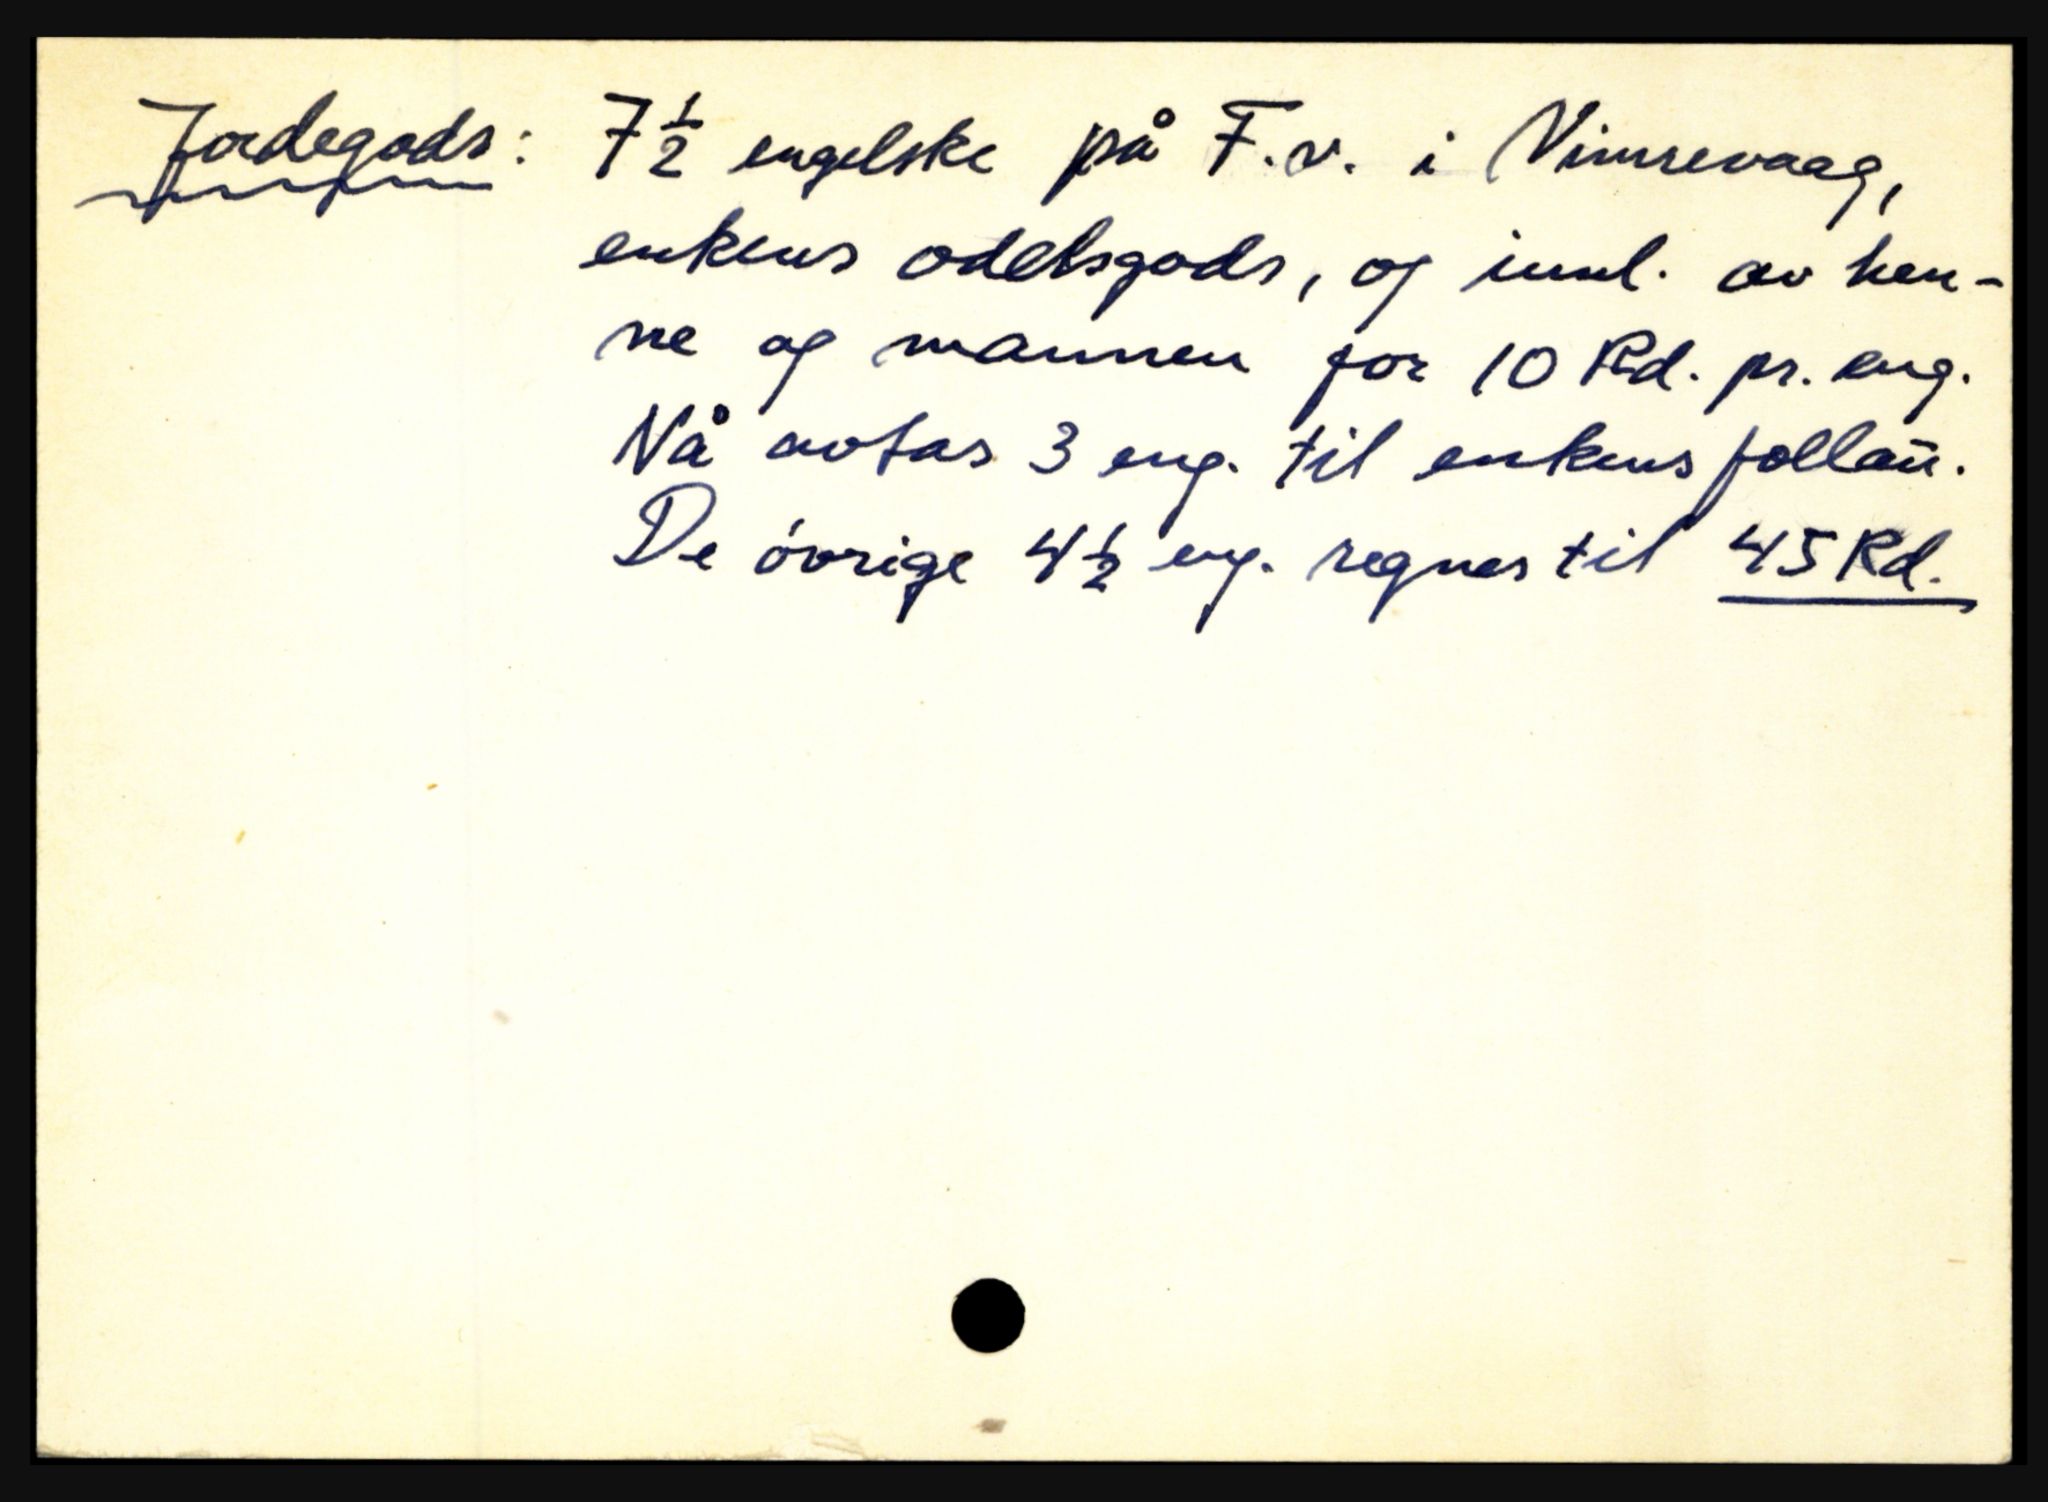 Jordegods: 7½ engelske på F.v. i Vinnrevaag,
enkens odelsgods, og innl. av hen-
ne og mannen for 10 Rd. pr. eng.
Nå avtas 3 eng. til enkens follañ.
De óvrige 4½ eng. regnes til 45 Rd.